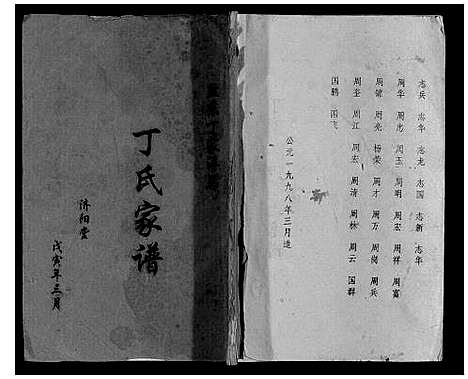 丁氏家谱
济阳堂
戊寅年三月
志兵 志华 志龙 志国 志新 志华
周华 周忠 周玉 周明 周宏 周祥 周富
周健 周亮 杨荣 周才 周万 周岗 周兵
周圣 周江 周宏 周清 周林 周云 国群
国鹅 国飞
公元一九九八年三月造